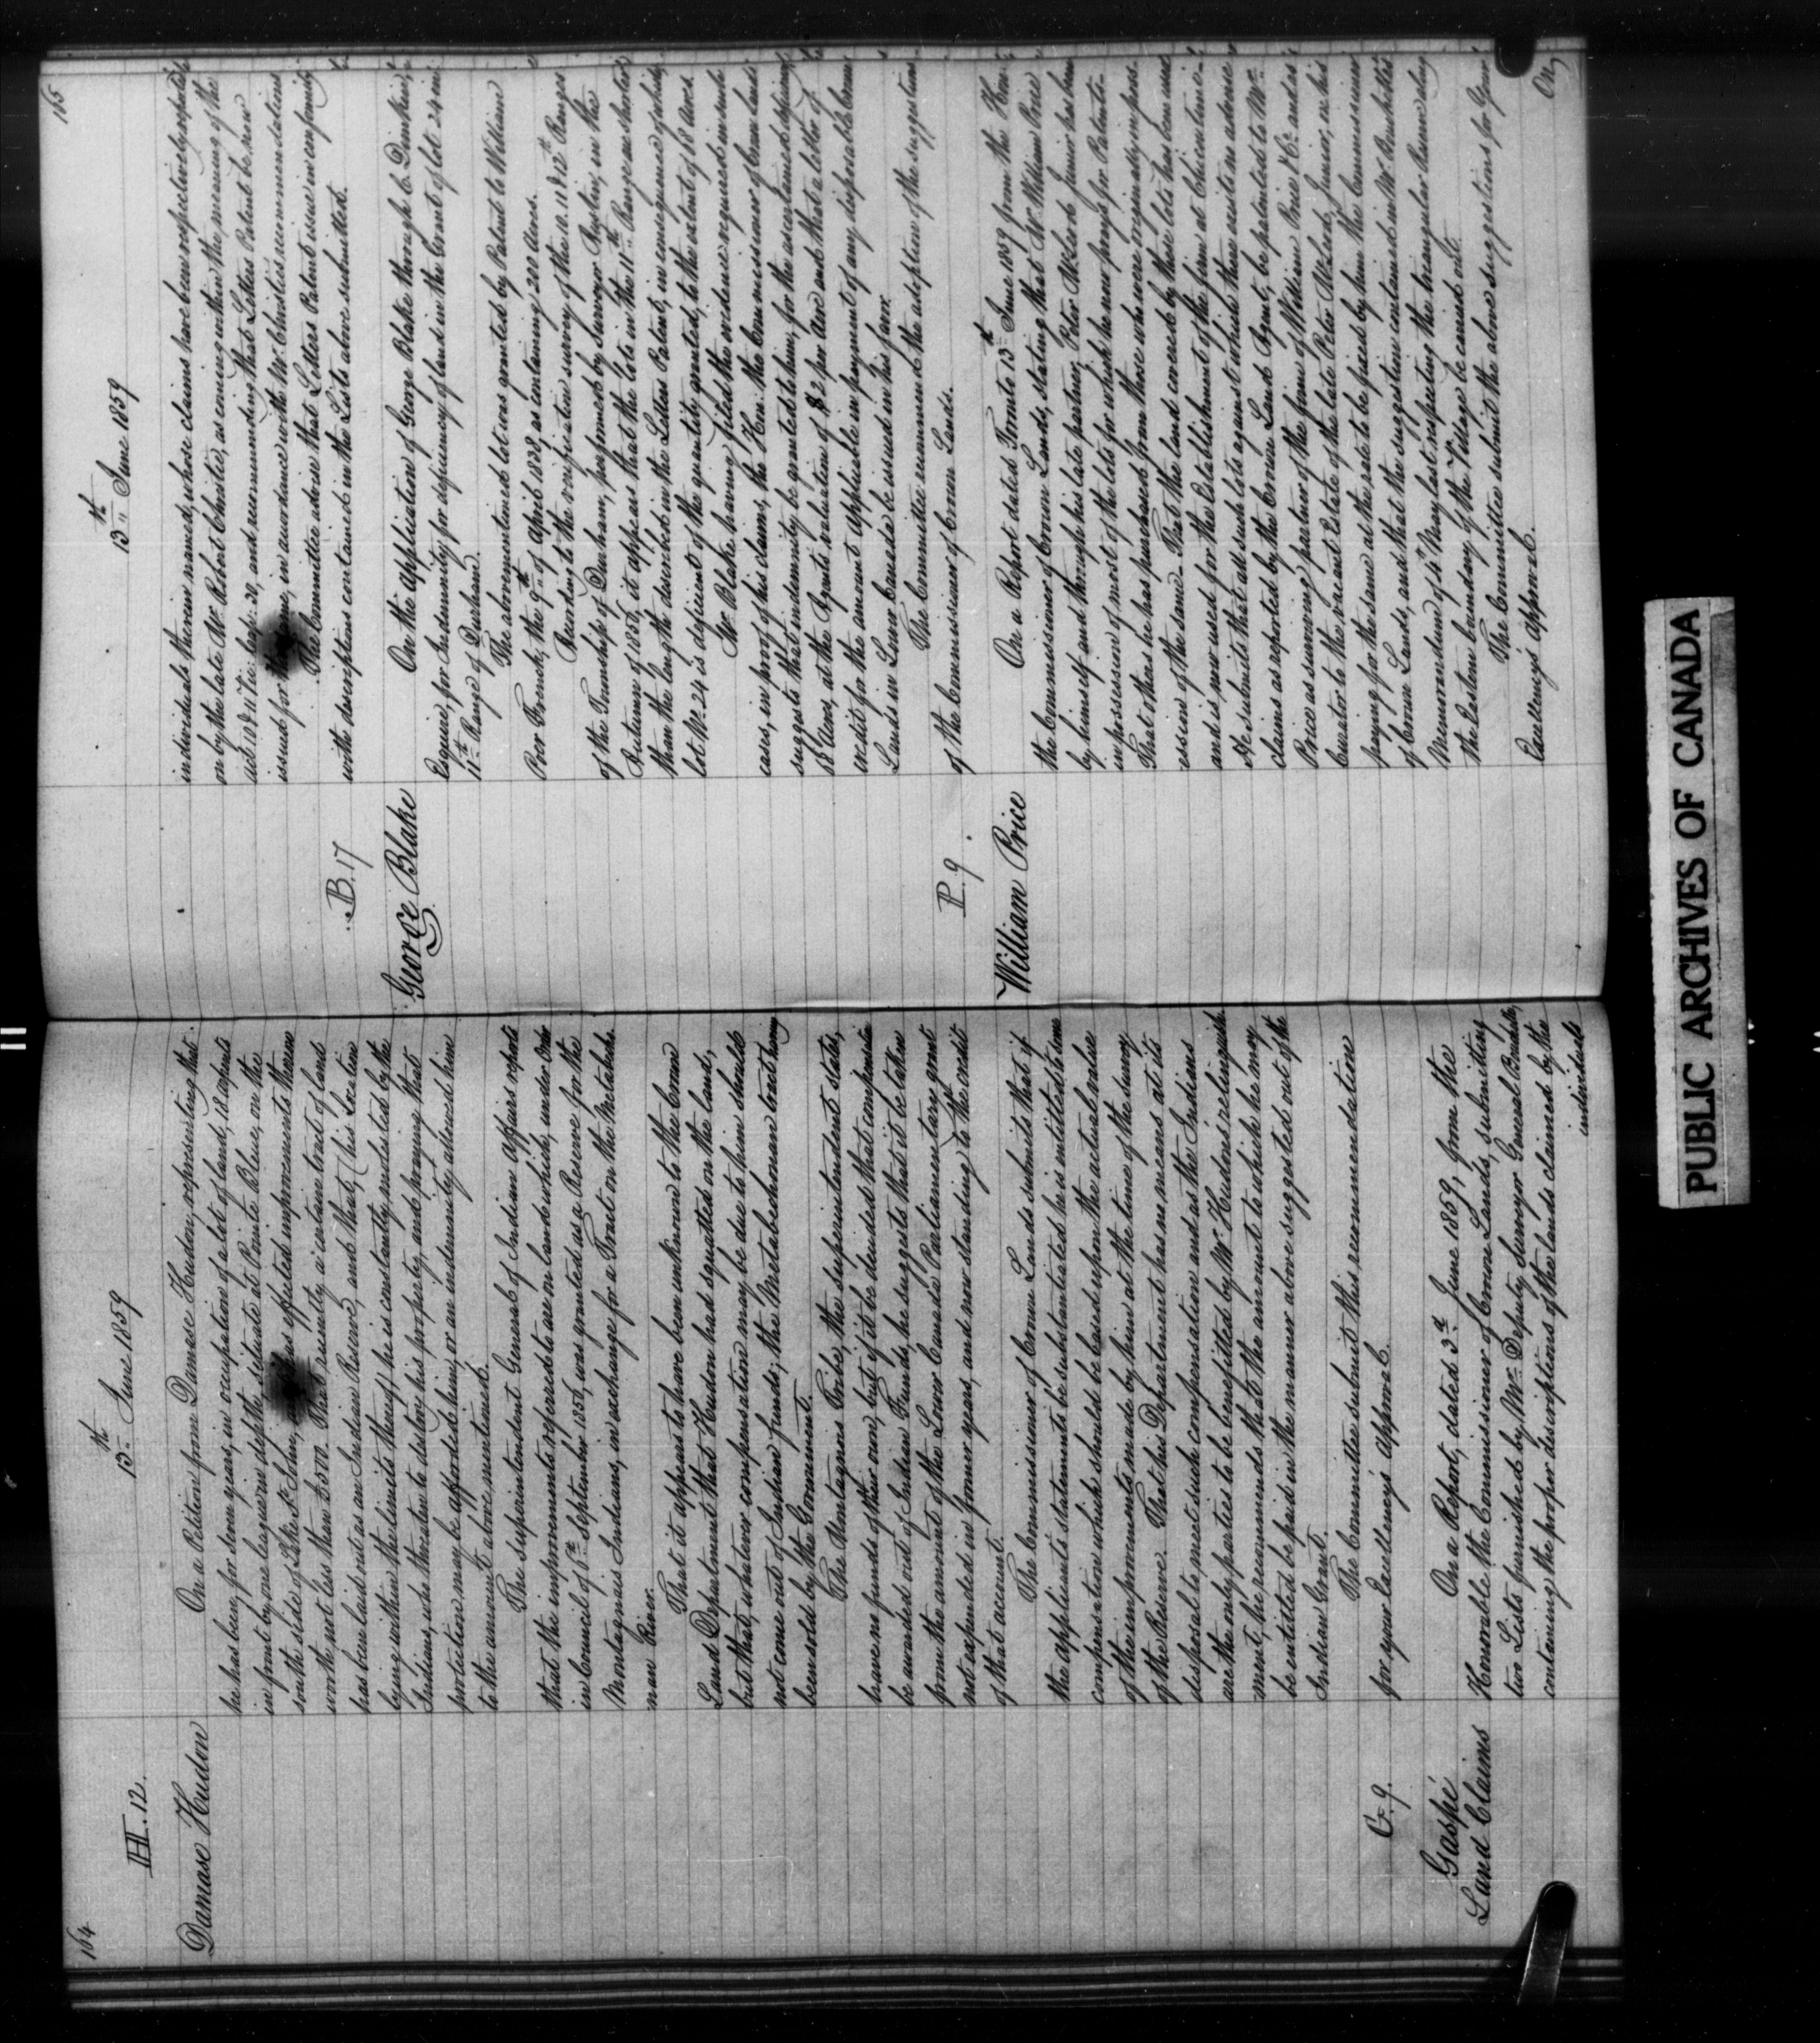 164
13th June 1859
H. 12.
Damase Hudon
On a Petition from Damase Hudon, representing that
he has been, for seven years, in occupation of a lot of land, 18 arpents
in front by one league in depth, situate at Pointe Bleue, on the
south side of Lake St. John, has effected improvements thereon
worth not less than £500. That recently a certain tract of land
has been laid out as an Indian Reserve, and that, (his Location
lying within the limits thereof) he is constantly molested by the
Indians, who threaten to destroy his property, and praying that
protection may be afforded him, or an indemnity allowed him
to the amount above mentioned.
The Superintendent General of Indian Affairs reports
that the improvements referred to are on land which, under Order
in Council of 6th September 1856, was granted as a Reserve for the
Montagnais Indians, in exchange for a Tract on the Metabetch-
man River.
That it appears to have been unknown to the Crown
Land Department that Hudon had squatted on the land,
but that, whatever compensation may be due to him should
not come out of Indian funds; the Metabetchonan tract having
been sold by the Government.
The Montagnais Tribe, the Superintendent states,
have no funds of their own, but if it be decided that compensation
be awarded out of Indian Funds, he suggests that it be taken
from the amount of the Lower Canada Parliamentary grant
not expended in former years, and now standing to the credit
of that account.
The Commissioner of Crown Lands submits that if
the applicant's statements be substantiated he is entitled to some
compensation which should be based upon the actual value
of the improvements made by him at the time of the survey
of the Reserve. That his Department has no means at its
disposal to meet such compensation and as the Indians
are the only parties to be benefitted by Mr. Hudon's relinquish-
ment, he recommends that the amount to which he may
be entitled be paid in the manner above suggested out of the
Indian Grant.
The Committee submit this recommendation
for your Excellency's approval.
G. 9.
Gaspé
Land Claims
On a Report, dated 3d June 1859, from the
Honorable the Commissioner of Crown Lands, submitting
two Lists furnished by Mr. Deputy Surveyor General Bouchette,
containing the proper descriptions of the lands claimed by the
individuals
165
13th June 1859
individuals therein named, whose claims have been respectively reported
on by the late Mr. Robert Christie, as coming within the meaning of the
act 10 & 11 Vic: cap: 30, and recommending that Letters Patent be now
issued for the same, in accordance with Mr. Christie's recommendations
The Committee advise that Letters Patent issue in conformity
with the descriptions contained in the Lists above submitted.
B. 17
George Blake
On the application of George Blake through C. Dunkin,
Esquire, for Indemnity for deficiency of land in the Grant of lot 24 in
11th Range of Durham.
The abovementioned lot was granted by Patent to William
Poor French, the 9th of April 1838, as containing 200 Acres.
According to the verification survey of the 10. 11 & 12th Ranges
of the Township of Durham, performed by Surveyor in the
Autumn of 1856, it appears that the lots in the 11th Range are shorter
than the length described in the Letters Patent, in consequence of which,
lot No. 24 is deficient of the quantity granted, to the extent of 18 Acres.
Mr. Blake having filed the evidence required in such
cases, in proof of his claim, the Hon: the Commissioner of Crown Lands
suggests that indemnity be granted to him, for the ascertained deficiency
18 Acres, at the Agents valuation of $2 per Acre and that a letter of
credit for the amount applicable in payment of any disposable Crown
Lands in Lower Canada be issued in his favor.
The Committee recommend the adoption of the suggestions
of the Commissioner of Crown Lands.
P. 9.
William Price
On a Report dated Toronto 13th June 1859 from the Hon:
the Commissioner of Crown Lands, stating that Mr. William Price
by himself and through his late partner, Peter McLeod Junior has been
in possession of most of the lots for which he now prays for Patents.
That others he has purchased from those who were originally in poss-
ession of the same. That the land covered by these lots has been used
and is now used for the Establishment of the firm at Chicoutimi.
He submits that all such lots against which there exists no adverse
claims as reported by the Crown Lands Agent, be patented to Mr.
Price as surviving partner of the firm of William Price & Co. and as
Curator to the vacant Estate of the late Peter McLeod, Junior, on his
paying for the same at the rate to be fixed by him the Commissioner
of Crown Lands, and that the suggestion contained in Mr.
Memorandum of 4th May last respecting the triangular
the Eastern boundary of the Village be carried out.
The Committee submit the above suggestions for Your
Excellency's approval.
On
PUBLIC ARCHIVES OF CANADA